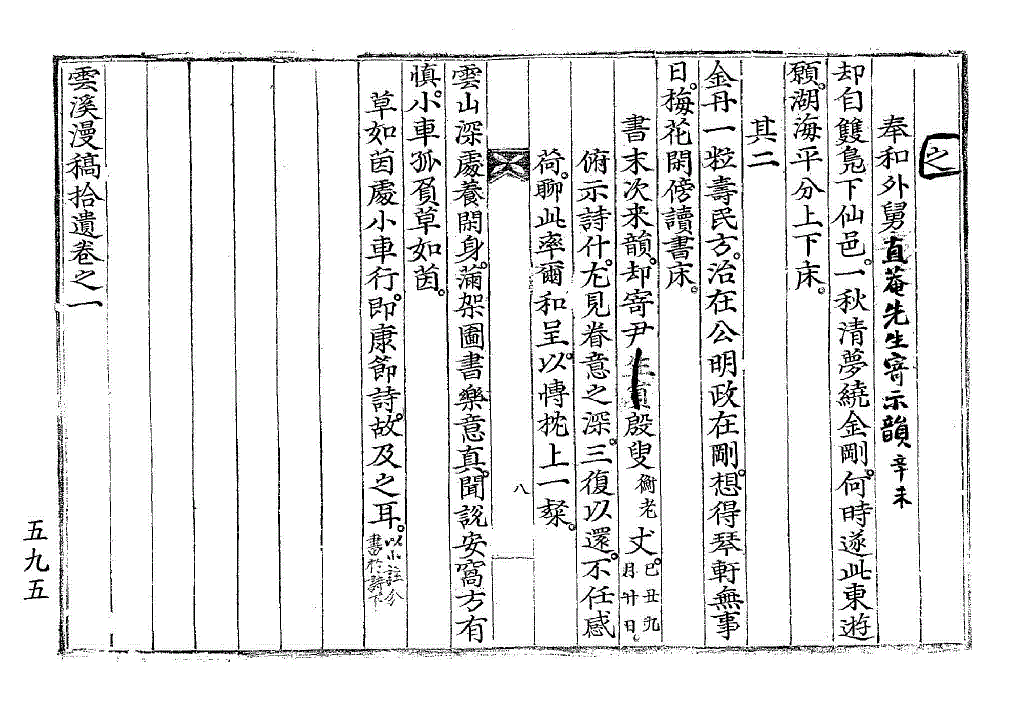 之
奉和外舅直菴先生寄示韻 辛未
却自雙鳧下仙邑。一秋清夢繞金剛。何時遂此東遊
願。湖海平分上下床。
其二
金丹一粒壽民方。治在公明政在剛。想得琴軒無事
日。梅花開傍讀書床。
書末次來韻。却寄尹殷叟 衡老 丈。己丑九月廿日。
俯示詩什。尤見眷意之深。三復以還。不任感
荷。聊此率爾和呈。以博枕上一粲。
八
雲山深處養閒身。滿架圖書樂意真。聞說安窩方有
慎。小車孤負草如茵。
草如茵處小車行。即康節詩。故及之耳。以小註分書於詩下
雲溪漫稿拾遺卷之一
五九五